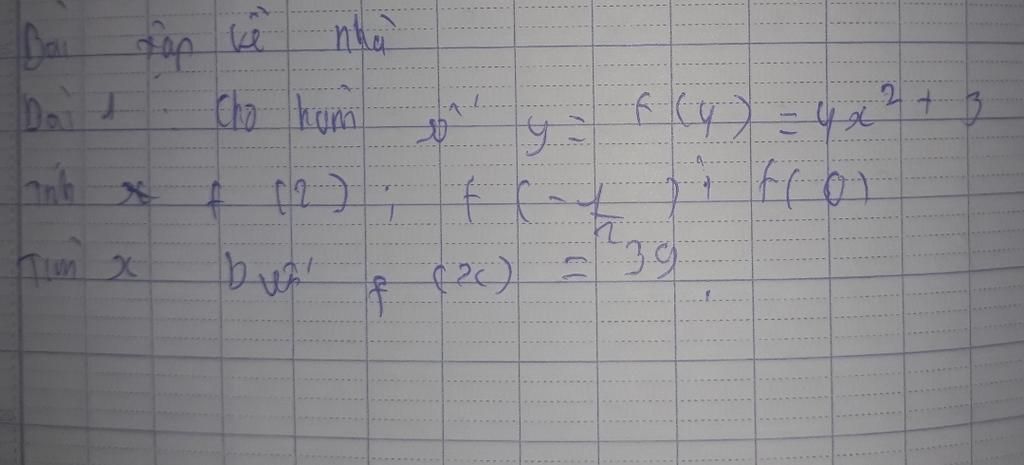 Bài tập về nhà
Bài 1 Cho hàm số y = f(y) = 4x² + 3
Tính x f (2) ; f (-1/2) ; f(0)
Tìm x biết f (x) = 39